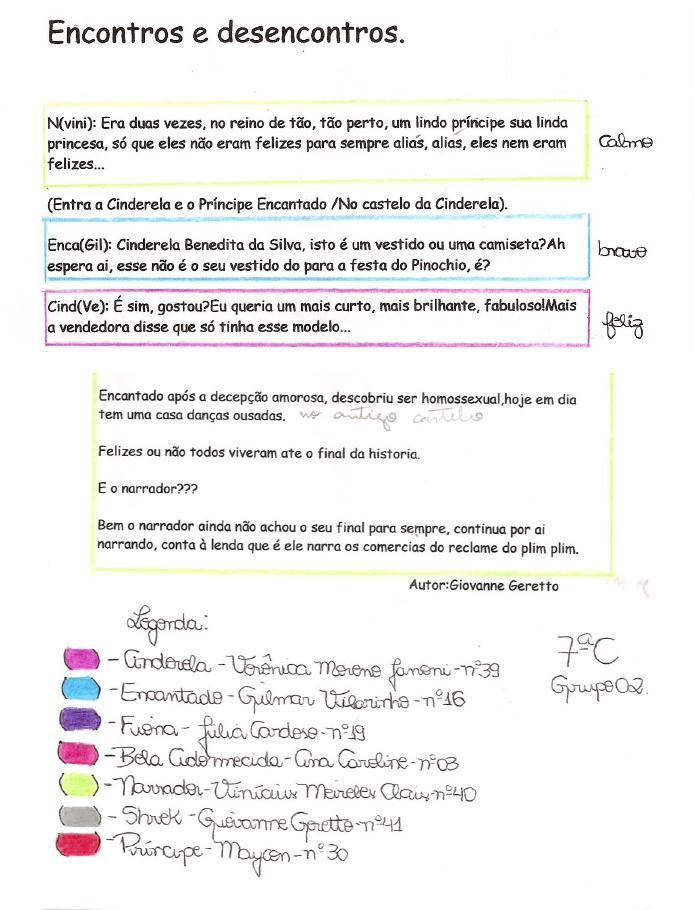 Encontros e desencontros.
N(vini): Era duas vezes, no reino de tão, tão perto, um lindo príncipe sua linda
princesa, só que eles não eram felizes para sempre aliás, alias, eles nem eram
felizes...
calmo
(Entra a Cinderela e o Príncipe Encantado /No castelo da Cinderela).
Enca(Gil): Cinderela Benedita da Silva, isto é um vestido ou uma camiseta?Ah
espera ai, esse não é o seu vestido do para a festa do Pinochio, é?
bravo
Cind(Ve): É sim, gostou?Eu queria um mais curto, mais brilhante, fabuloso!Mais
a vendedora disse que só tinha esse modelo...
feliz
Encantado após a decepção amorosa, descobriu ser homossexual,hoje em dia
tem uma casa danças ousadas. no antigo castelo
Felizes ou não todos viveram ate o final da historia.
E o narrador???
Bem o narrador ainda não achou o seu final para sempre, continua por ai
narrando, conta à lenda que é ele narra os comercias do reclame do plim plim.
Autor:Giovanne Geretto
Legenda:
7ªC
Grupo 02.
- Cinderela - Verônica Moreno - nº39
- Encantado - Gilmar Vilarinho - nº16
- Fiona - Julia Cardoso - nº19
- Bela Adormecida - Ana Caroline - nº03
- Narrador - Vinícius Meireles - nº40
- Shrek - Giovanne Geretto - nº41
- Príncipe - Maycon - nº30